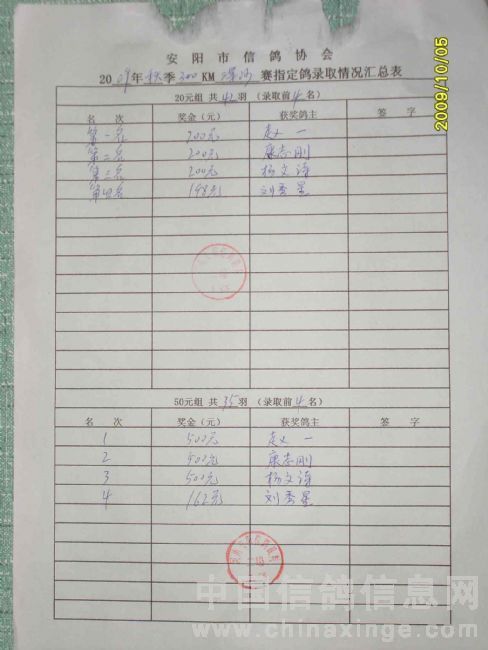 安阳市信鸽协会
2009年秋季200KM 赛指定鸽录取情况汇总表
20元组 共42羽 (录取前4名)
名 次 奖金(元) 获奖鸽主 签 字
第一名 200元 赵一
第二名 200元 康志刚
第三名 200元 杨文涛
第四名 198元 刘秀星
50元组 共35羽 (录取前4名)
名 次 奖金(元) 获奖鸽主 签 字
1 500元 赵一
2 500元 康志刚
3 500元 杨文涛
4 162元 刘秀星
2009/10/05
中国信鸽信息网
www.chinaxinge.com